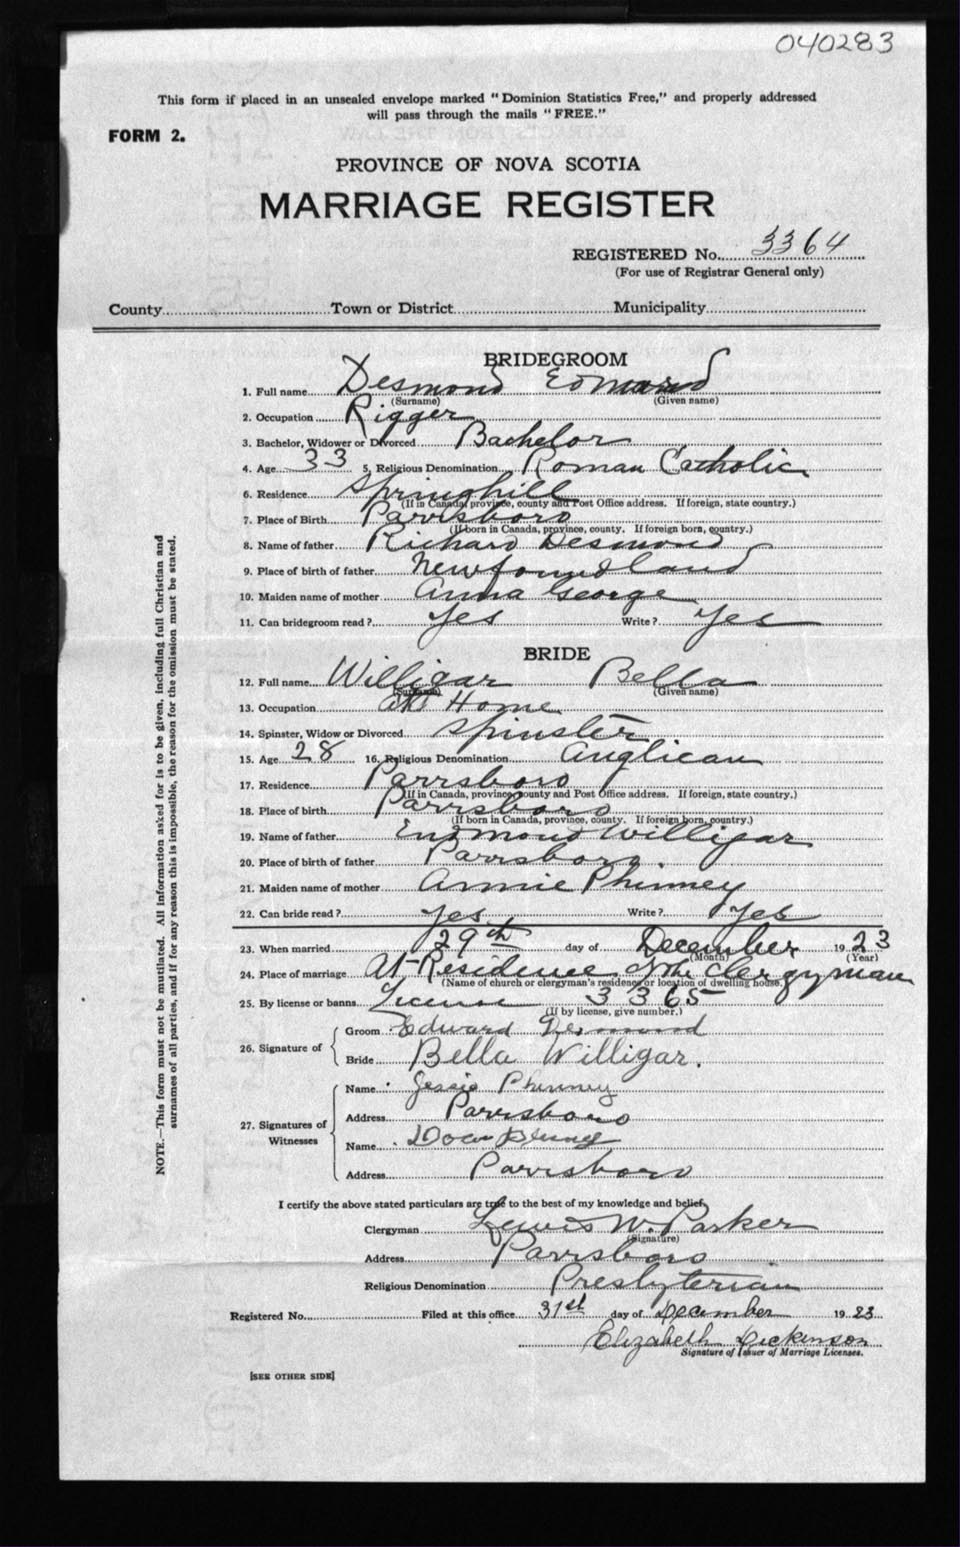 040283
This form if placed in an unsealed envelope marked "Dominion Statistics Free," and properly addressed
will pass through the mails "FREE."
FORM 2.
PROVINCE OF NOVA SCOTIA
MARRIAGE REGISTER
REGISTERED No. 3364
(For use of Registrar General only)
County Town or District Municipality
BRIDEGROOM
1. Full name Desmond
(Surname) (Given name)
2. Occupation Rigger
3. Bachelor, Widower or Divorced Bachelor
4. Age 33 5. Religious Denomination Roman Catholic
6. Residence Springhill
(If in Canada, province, county and Post Office address. If foreign, state country.)
7. Place of Birth Parrsboro
(If born in Canada, province, county. If foreign born, country.)
8. Name of father Richard Desmond
9. Place of birth of father Newfoundland
10. Maiden name of mother Anna George
11. Can bridegroom read? Yes Write? Yes
BRIDE
12. Full name Willigar Bella
(Surname) (Given name)
13. Occupation At Home
14. Spinster, Widow or Divorced Spinster
15. Age 28 16. Religious Denomination Anglican
17. Residence Parrsboro
(If in Canada, province, county and Post Office address. If foreign, state country.)
18. Place of birth Parrsboro
(If born in Canada, province, county. If foreign born, country.)
19. Name of father Willigar
20. Place of birth of father Parrsboro.
21. Maiden name of mother Annie Phinney
22. Can bride read? Yes. Write? Yes
23. When married 29th day of December 1923
(Month) (Year)
24. Place of marriage At Residence of the Clergyman
(Name of church or clergyman's residence or location of dwelling house.)
25. By license or banns License 3365
(If by license, give number.)
26. Signature of
Groom Edward Desmond
Bride Bella Willigar.
27. Signatures of Witnesses
Name Jessie Phinney
Address Parrsboro
Name
Address Parrsboro
I certify the above stated particulars are true to the best of my knowledge and belief,
Clergyman Lewis W. Parker
(Signature)
Address Parrsboro
Religious Denomination Presbyterian
Registered No. Filed at this office 31st day of December 1923
Elizabeth Dickinson
Signature of Issuer of Marriage Licenses.
[SEE OTHER SIDE]
NOTE.—This form must not be mutilated. All information asked for is to be given, including full Christian and
surnames of all parties, and if for any reason this is impossible, the reason for the omission must be stated.